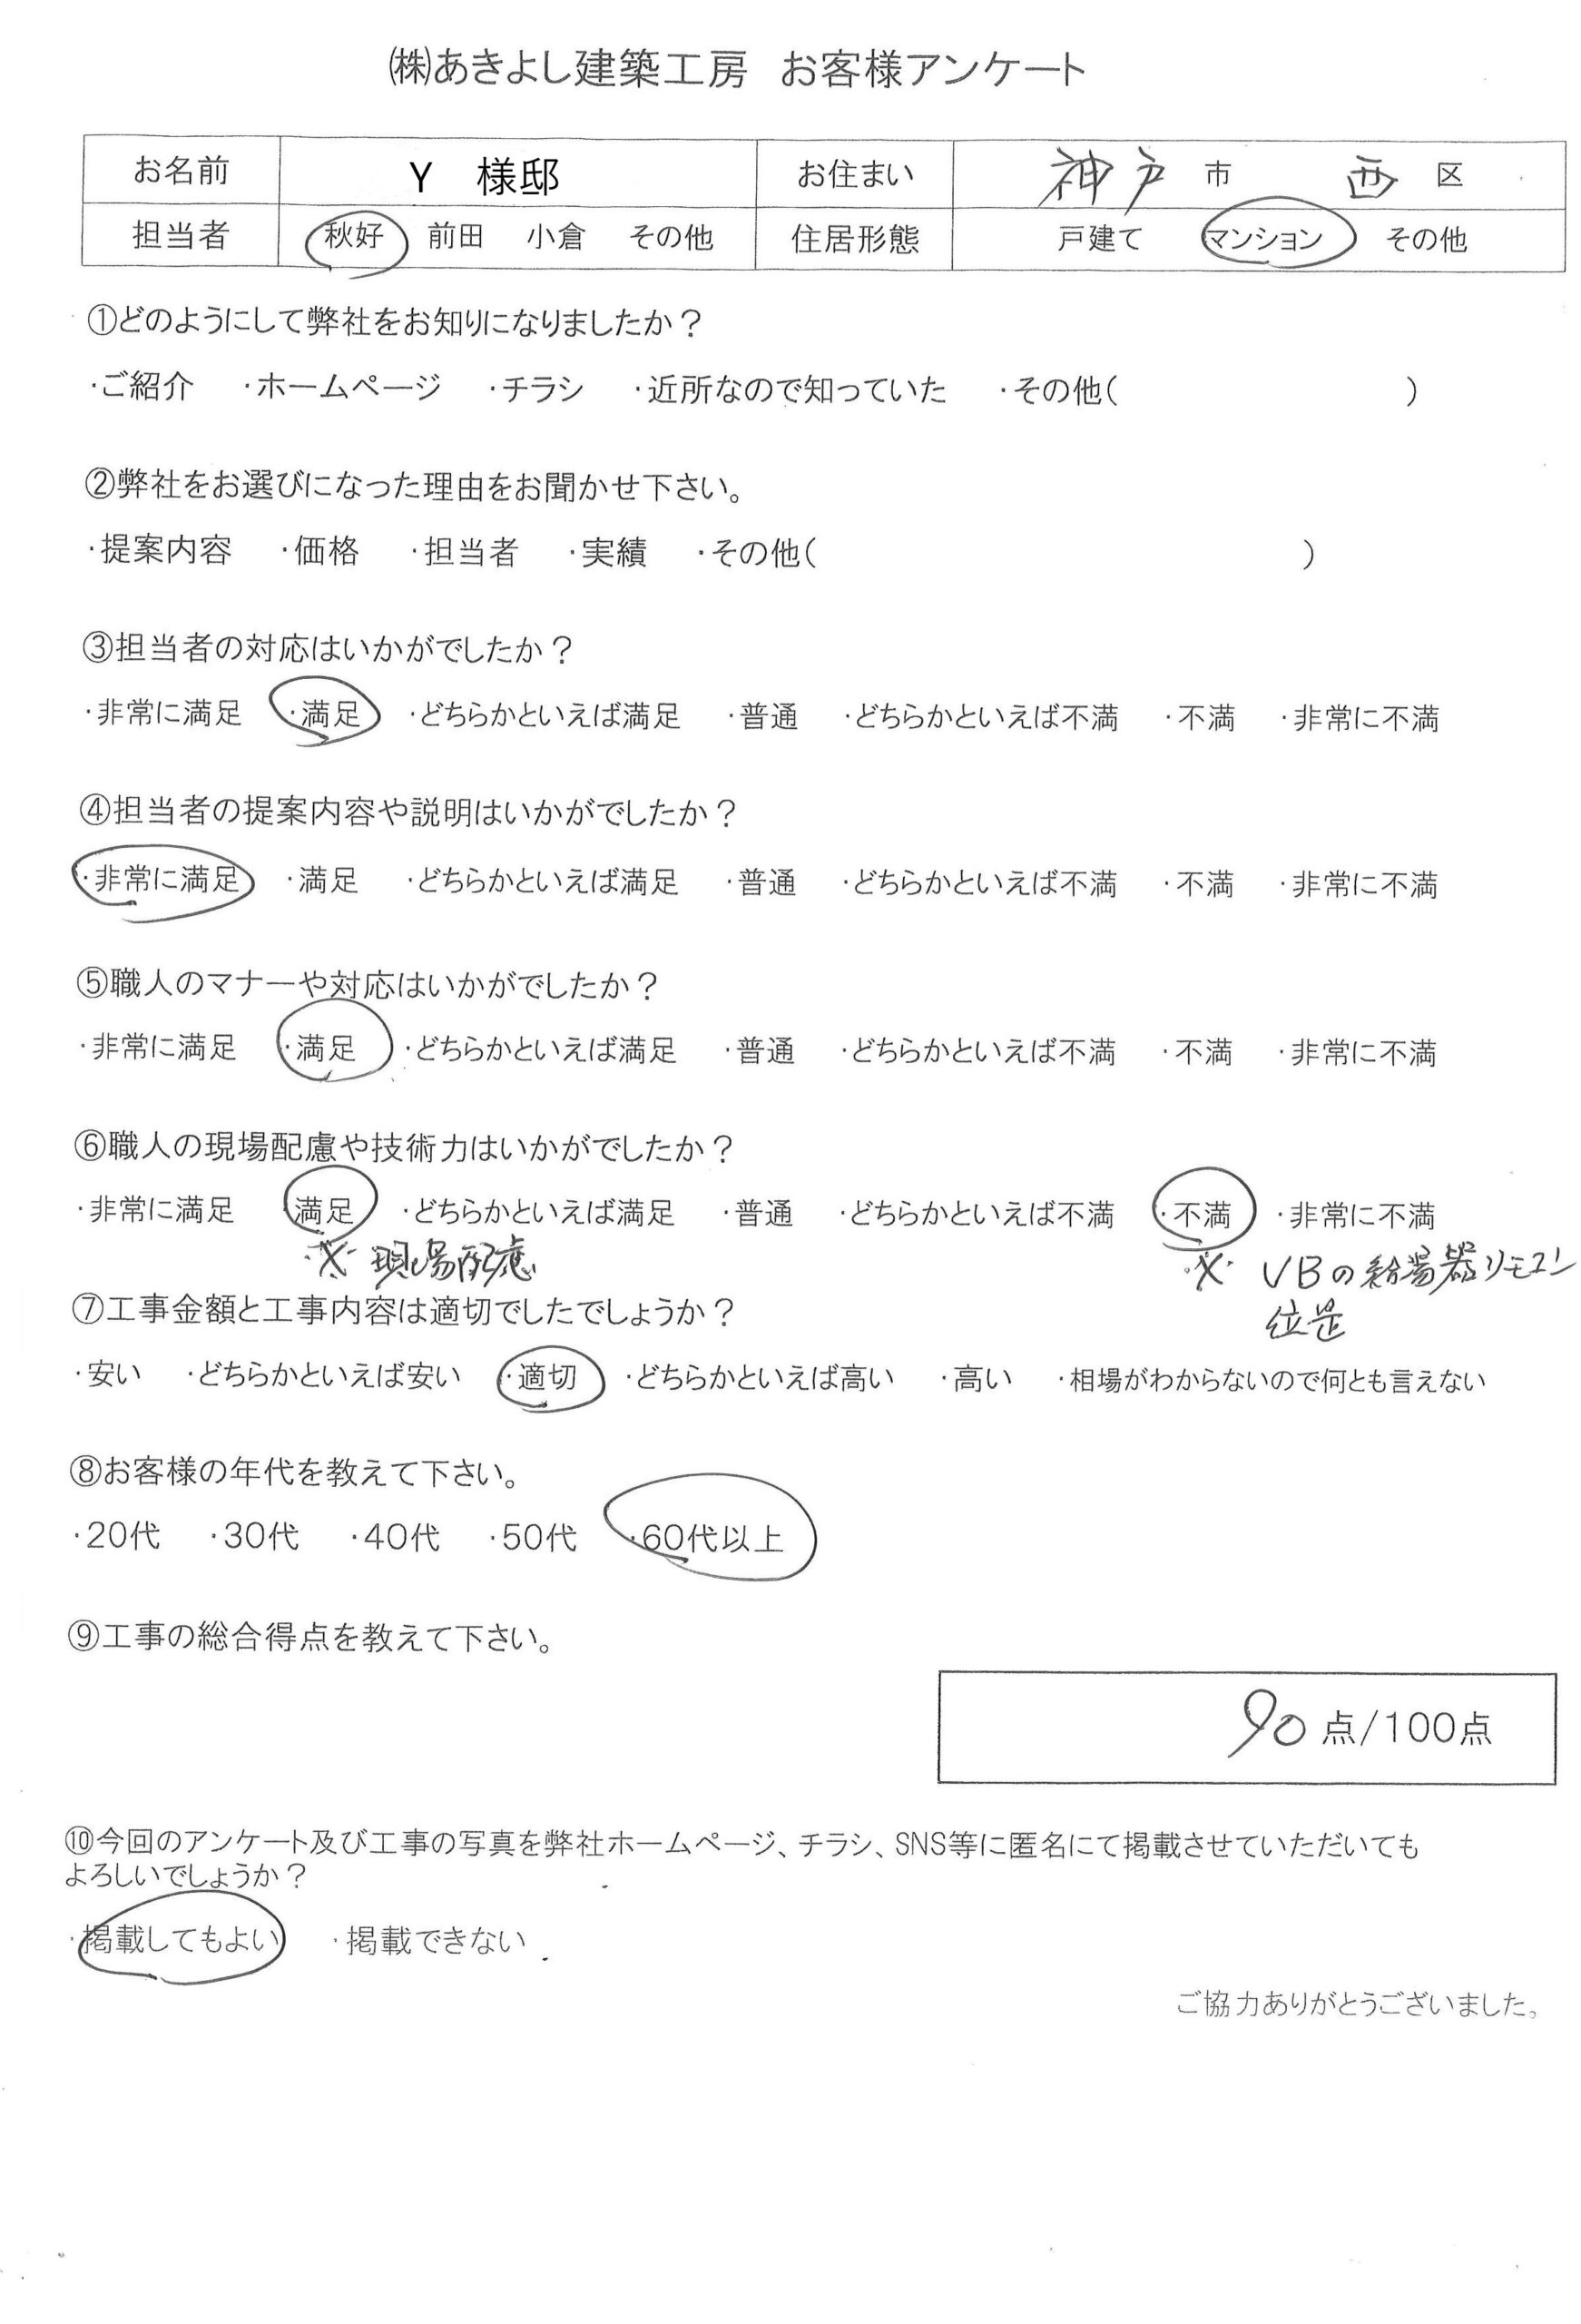 ㈱あきよし建築工房 お客様アンケート
お名前 Y 様邸 お住まい 神戸 市 西 区
担当者 秋好 前田 小倉 その他 住居形態 戸建て マンション その他
①どのようにして弊社をお知りになりましたか？
・ご紹介 ・ホームページ ・チラシ ・近所なので知っていた ・その他( )
②弊社をお選びになった理由をお聞かせ下さい。
・提案内容 ・価格 ・担当者 ・実績 ・その他( )
③担当者の対応はいかがでしたか？
・非常に満足 ・満足 ・どちらかといえば満足 ・普通 ・どちらかといえば不満 ・不満 ・非常に不満
④担当者の提案内容や説明はいかがでしたか？
・非常に満足 ・満足 ・どちらかといえば満足 ・普通 ・どちらかといえば不満 ・不満 ・非常に不満
⑤職人のマナーや対応はいかがでしたか？
・非常に満足 ・満足 ・どちらかといえば満足 ・普通 ・どちらかといえば不満 ・不満 ・非常に不満
⑥職人の現場配慮や技術力はいかがでしたか？
・非常に満足 ・満足 ・どちらかといえば満足 ・普通 ・どちらかといえば不満 ・不満 ・非常に不満
※ 現場配慮 ※ UBの給湯器リモコン
位置
⑦工事金額と工事内容は適切でしたでしょうか？
・安い ・どちらかといえば安い ・適切 ・どちらかといえば高い ・高い ・相場がわからないので何とも言えない
⑧お客様の年代を教えて下さい。
・20代 ・30代 ・40代 ・50代 ・60代以上
⑨工事の総合得点を教えて下さい。
90 点/100点
⑩今回のアンケート及び工事の写真を弊社ホームページ、チラシ、SNS等に匿名にて掲載させていただいても
よろしいでしょうか？
・掲載してもよい ・掲載できない
ご協力ありがとうございました。